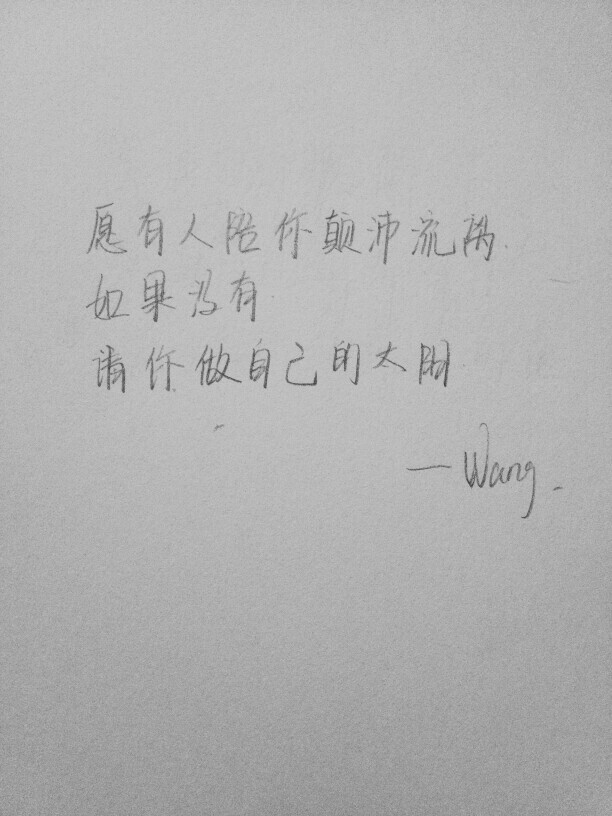 愿有人陪你颠沛流离.
如果没有.
请你做自己的太阳.
—Wang.